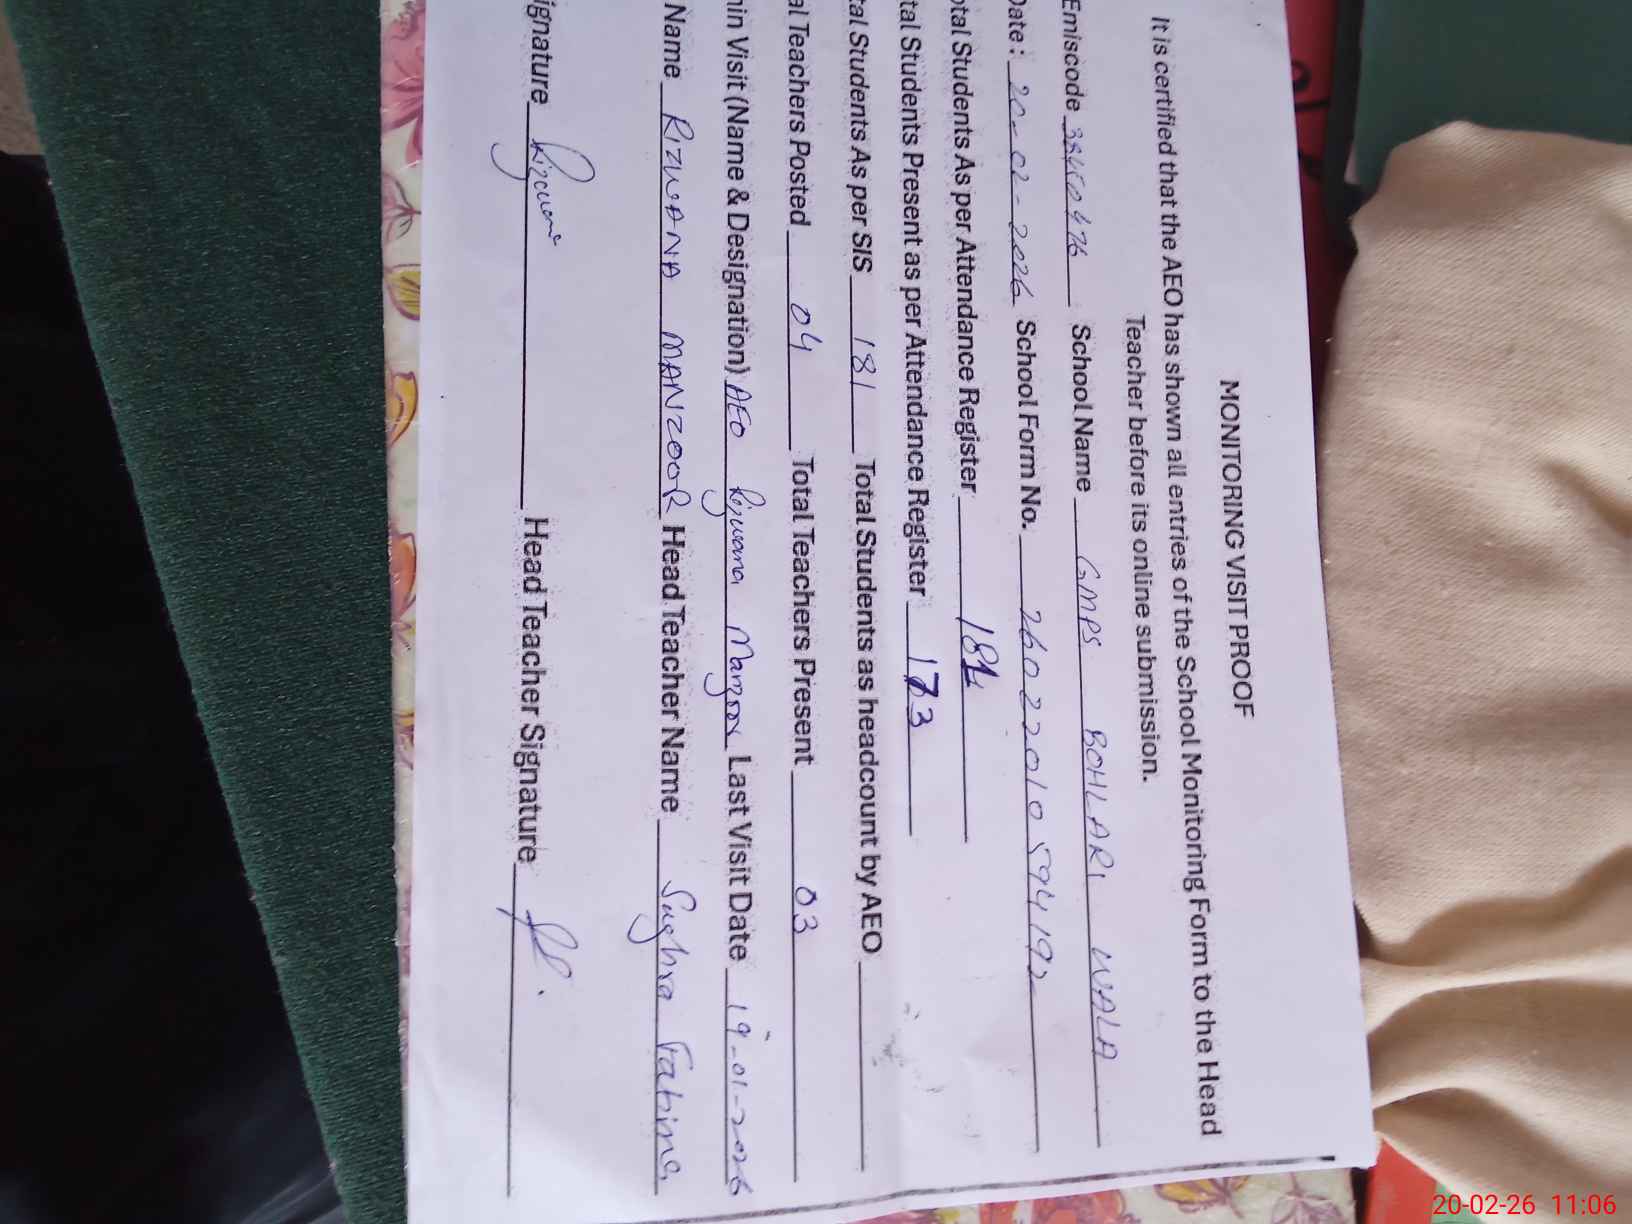 MONITORING VISIT PROOF
It is certified that the AEO has shown all entries of the School Monitoring Form to the Head
Teacher before its online submission.
Emiscode School Name GMPS BOHLARI WALA
Date: 20-02-2026 School Form No. 26022010594192
otal Students As per Attendance Register 181
tal Students Present as per Attendance Register 173
tal Students As per SIS 181 Total Students as headcount by AEO
al Teachers Posted 04 Total Teachers Present 03
in Visit (Name & Designation) AEO Rizwana Manzoor Last Visit Date 19-01-2026
Name RIZWANA MANZOOR Head Teacher Name Sughra Fatima
ignature Rizwana Head Teacher Signature
20-02-26 11:06